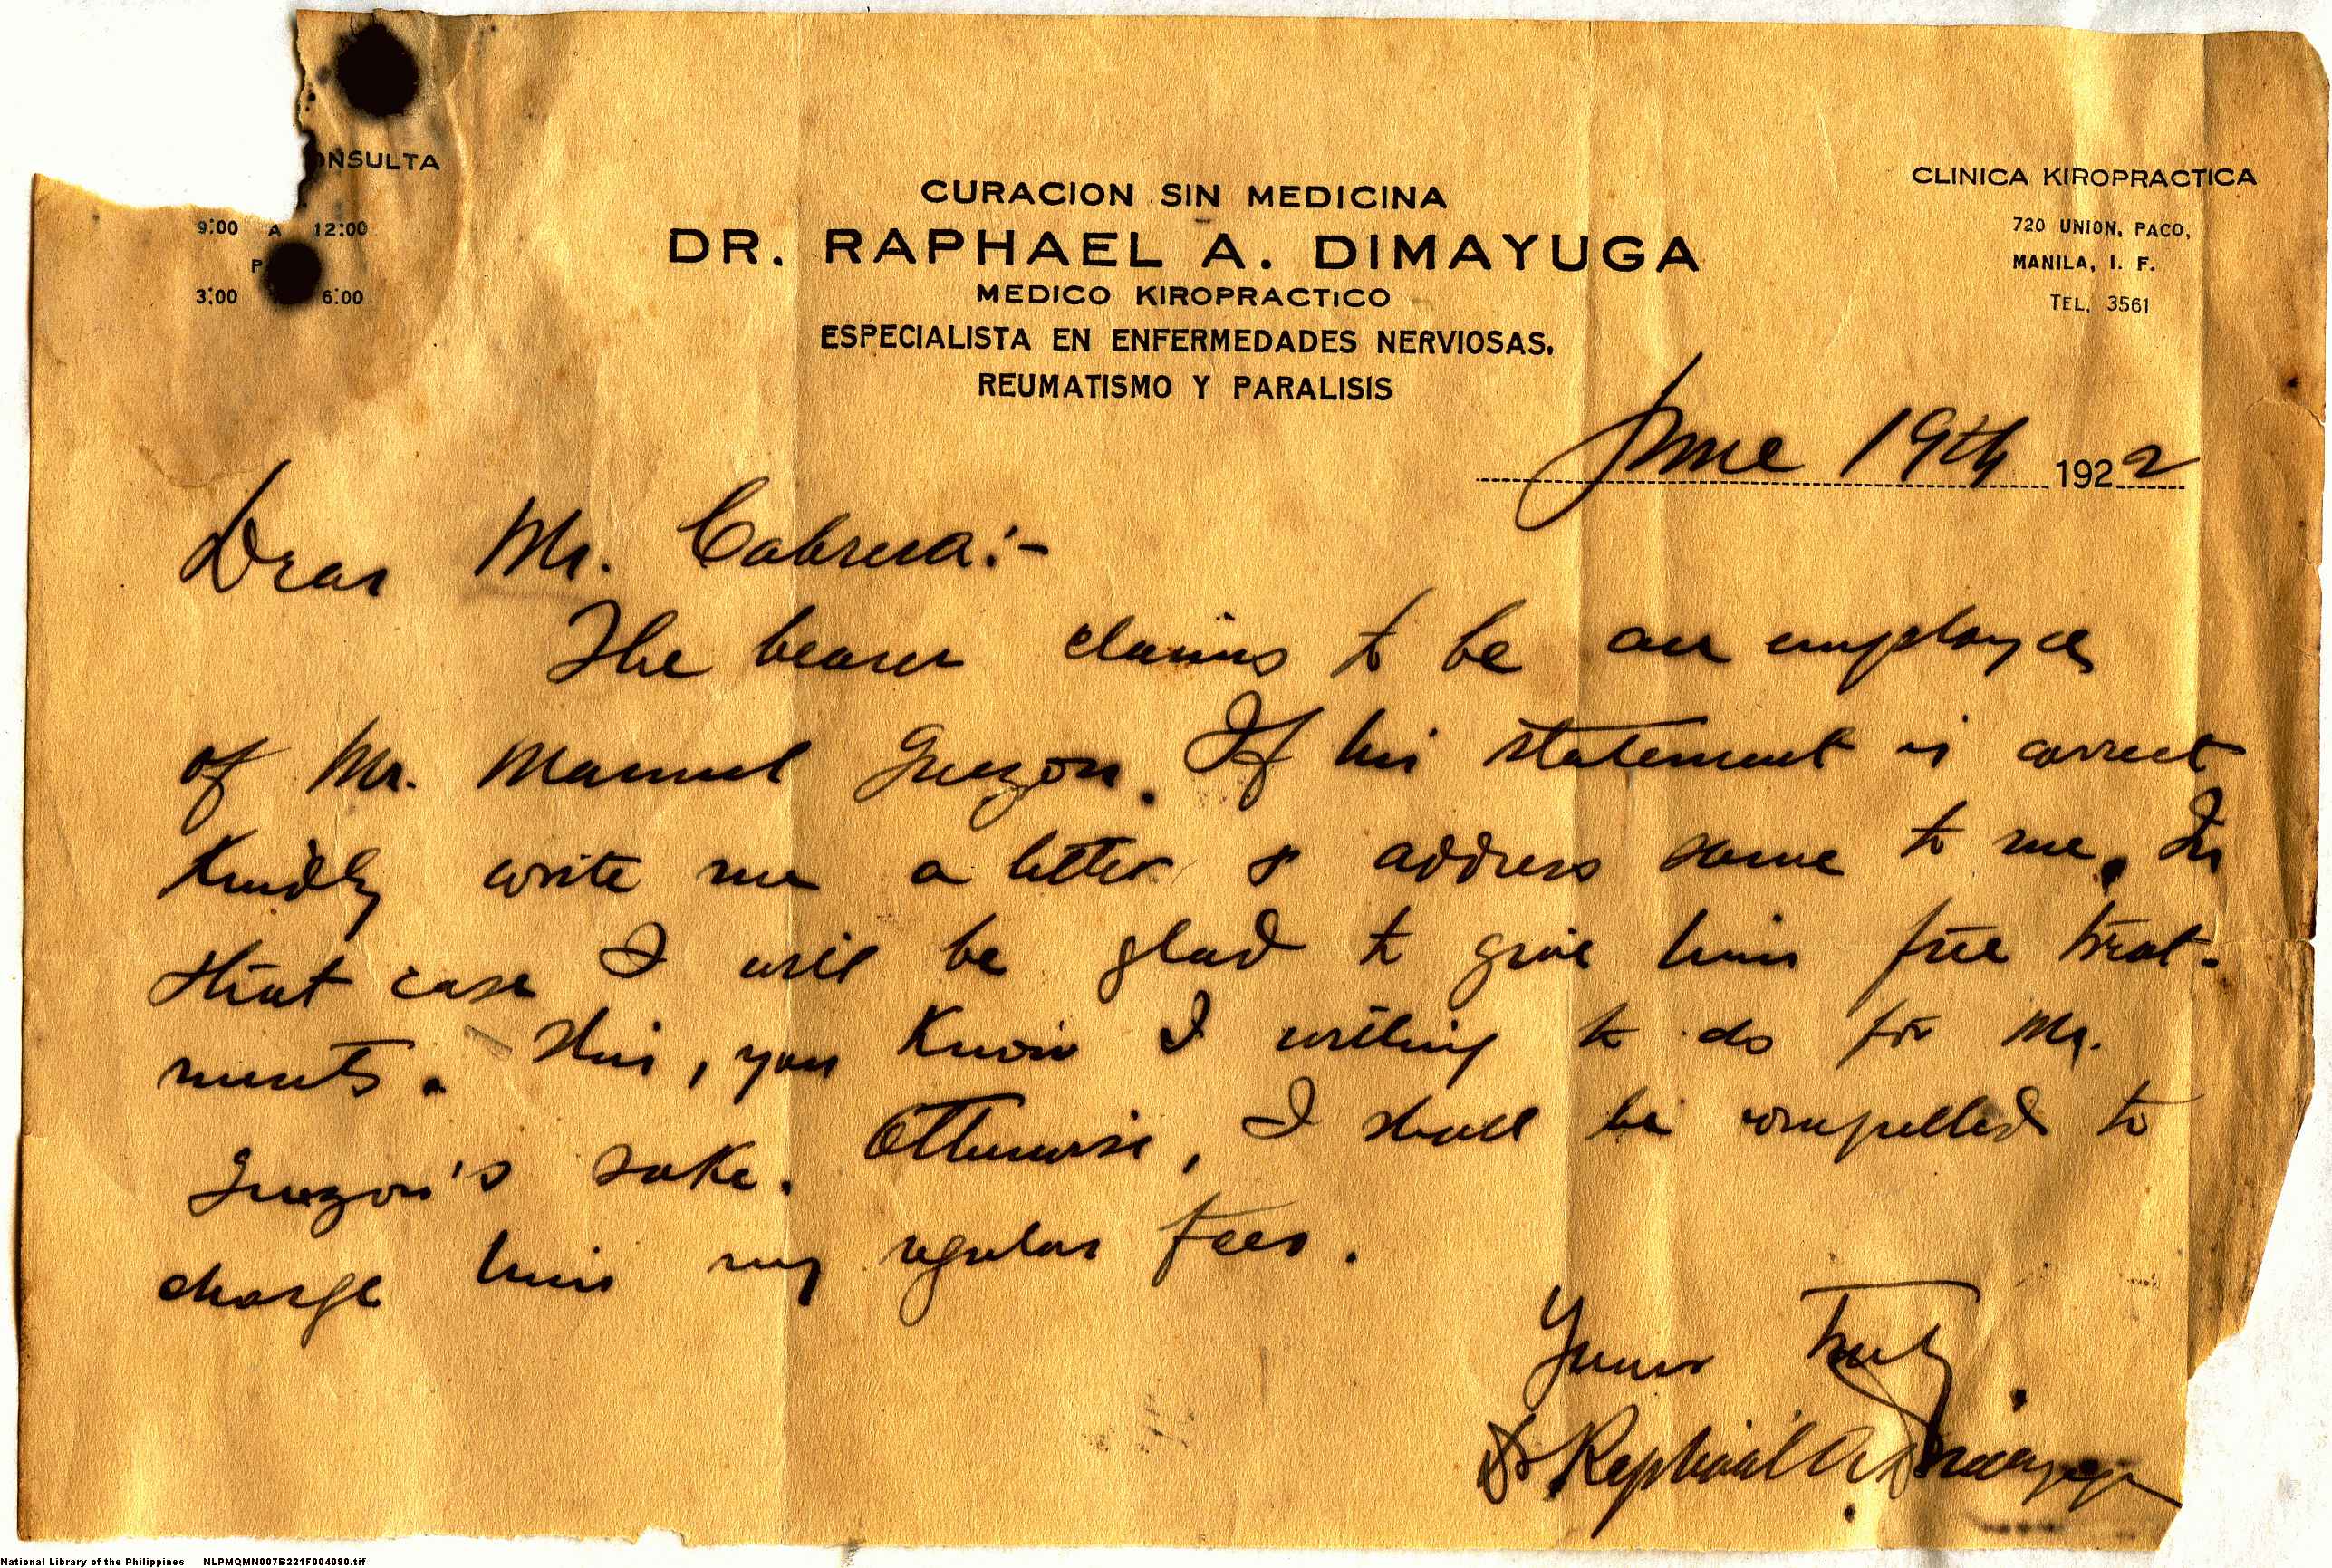 ONSULTA
9:00 A 12:00
P
3:00 6:00
CURACION SIN MEDICINA
DR. RAPHAEL A. DIMAYUGA
MEDICO KIROPRACTICO
ESPECIALISTA EN ENFERMEDADES NERVIOSAS.
REUMATISMO Y PARALISIS
CLINICA KIROPRACTICA
720 UNION, PACO,
MANILA, I. F.
TEL. 3561
June 19th 1922
Dear Mr. Cabrera:-
The bearer claims to be an employee
of Mr. Manuel Guezon. If his statement is correct
Kindly write me a letter & address same to me. In
that case I will be glad to give him free treat-
ments. This, you Know I willing to do for Mr.
Guezon's sake. Otherwise, I shall be compelled to
charge him my regular fees.
Yours Truly
Dr Raphael A. Dimayuga
National Library of the Philippines NLPMQMN007B221F004090.tif